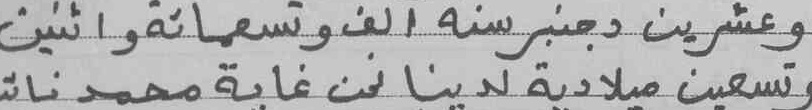 وعشرين دجنبر سنه الف وتسعمائة واثنين
وتسعين ميلادية لدينا نحن غاية محمد نائب